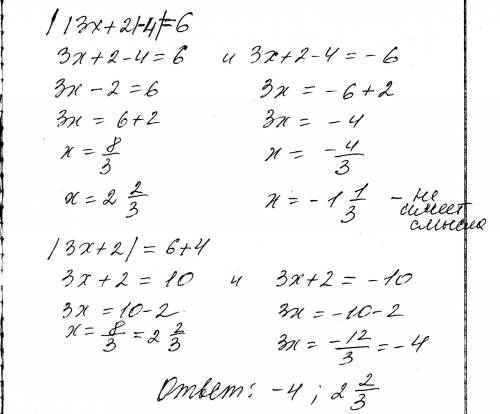 ||3x+2|-4|=6
3x+2-4=6 и 3x+2-4=-6
3x-2=6 3x=-6+2
3x=6+2 3x=-4
x=8/3 x=-4/3
x=2 2/3 x=-1 1/3 - не имеет смысла
|3x+2|=6+4
3x+2=10 и 3x+2=-10
3x=10-2 3x=-10-2
x=8/3=2 2/3 3x=-12/3=-4
Ответ: -4; 2 2/3